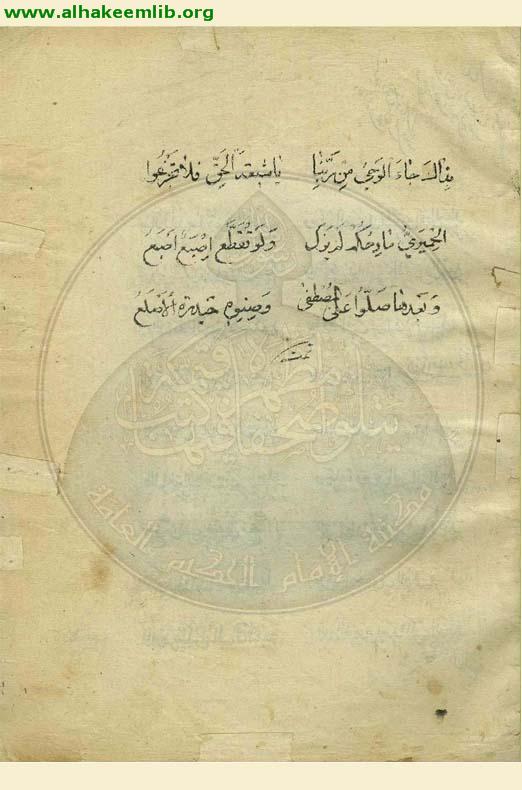 www.alhakeemlib.org
بذاك جاء الوحي من ربنا يا شيعة الحق فلا تجزعوا
الحميري مادحكم لم يزل ولو تقطع اصبع اصبع
وبعدها صلوا على المصطفى وصنوه حيدرة الأصلع
تمت
مكتبة الإمام الحكيم العامة